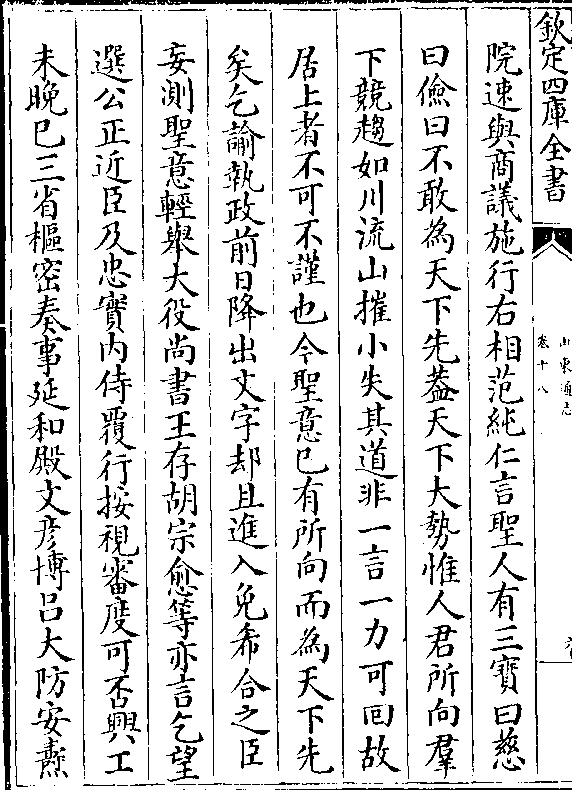 欽定四庫全書
山東通志
卷十八
院速與商議施行右相范純仁言聖人有三寳曰慈
曰儉曰不敢為天下先葢天下大勢惟人君所向羣
下競趨如川流山摧小失其道非一言一力可囘故
居上者不可不謹也今聖意已有所向而為天下先
矣乞諭執政前日降出文字却且進入免希合之臣
妄測聖意輕舉大役尚書王存胡宗愈等亦言乞望
選公正近臣及忠實内侍覆行按視審度可否興工
未晚已三省樞密奏事延和殿文彦博吕大防安燾